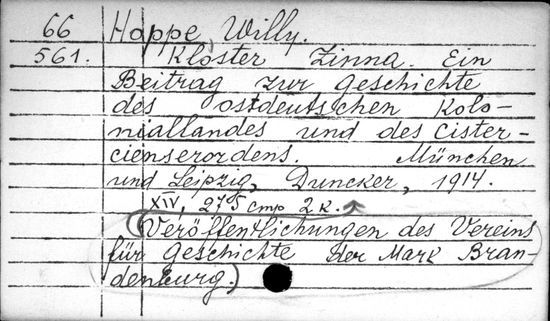 66 Hoppe, Willy.
561. Kloster Zinna. Ein
Beitrag zur Geschichte
des ostdeutschen Kolo-
niallandes und des Cister-
cienserordens. München
und Leipzig, Duncker, 1914.
XIV, 275 стр 2 к.
(Veröffentlichungen des Vereins
für Geschichte der Mark Bran-
denburg.)